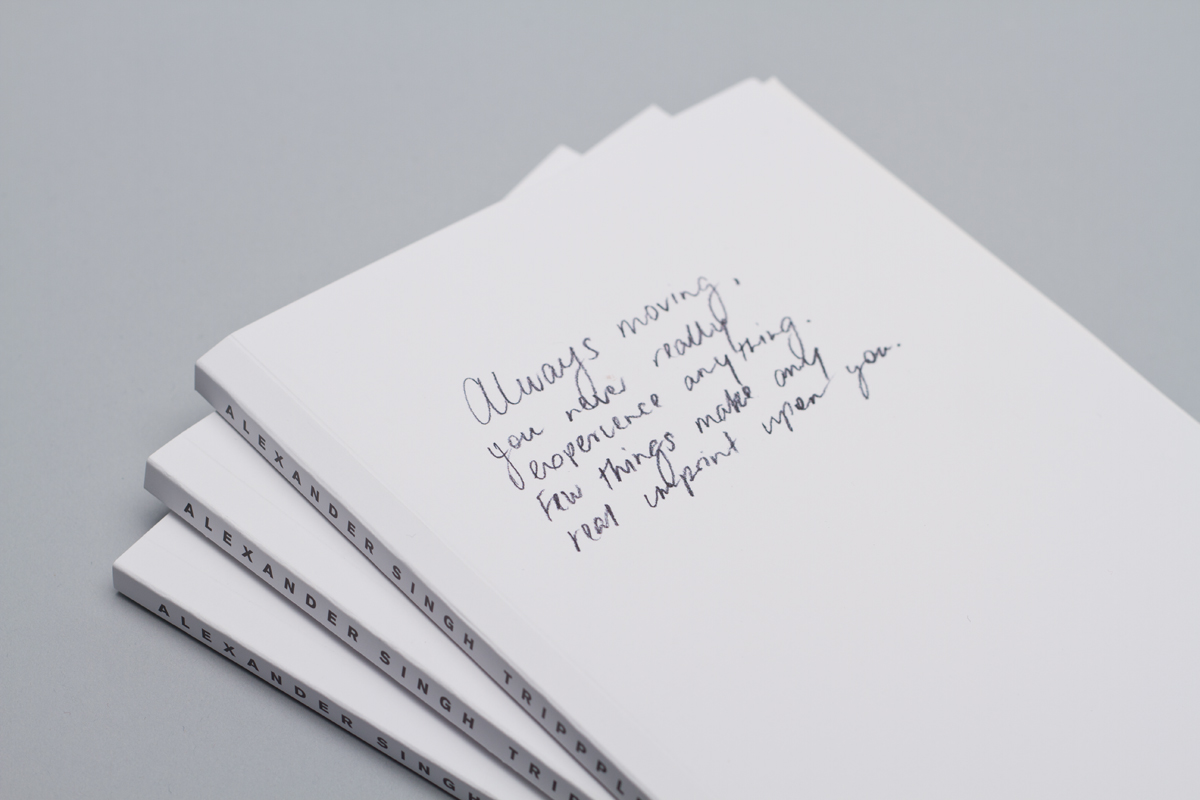 Always moving,
you never really
experience anything.
Few things make any
real imprint upon you.
ALEXANDER SINGH TRIPPPL
ALEXANDER SINGH TRIP
ALEXANDER SINGH